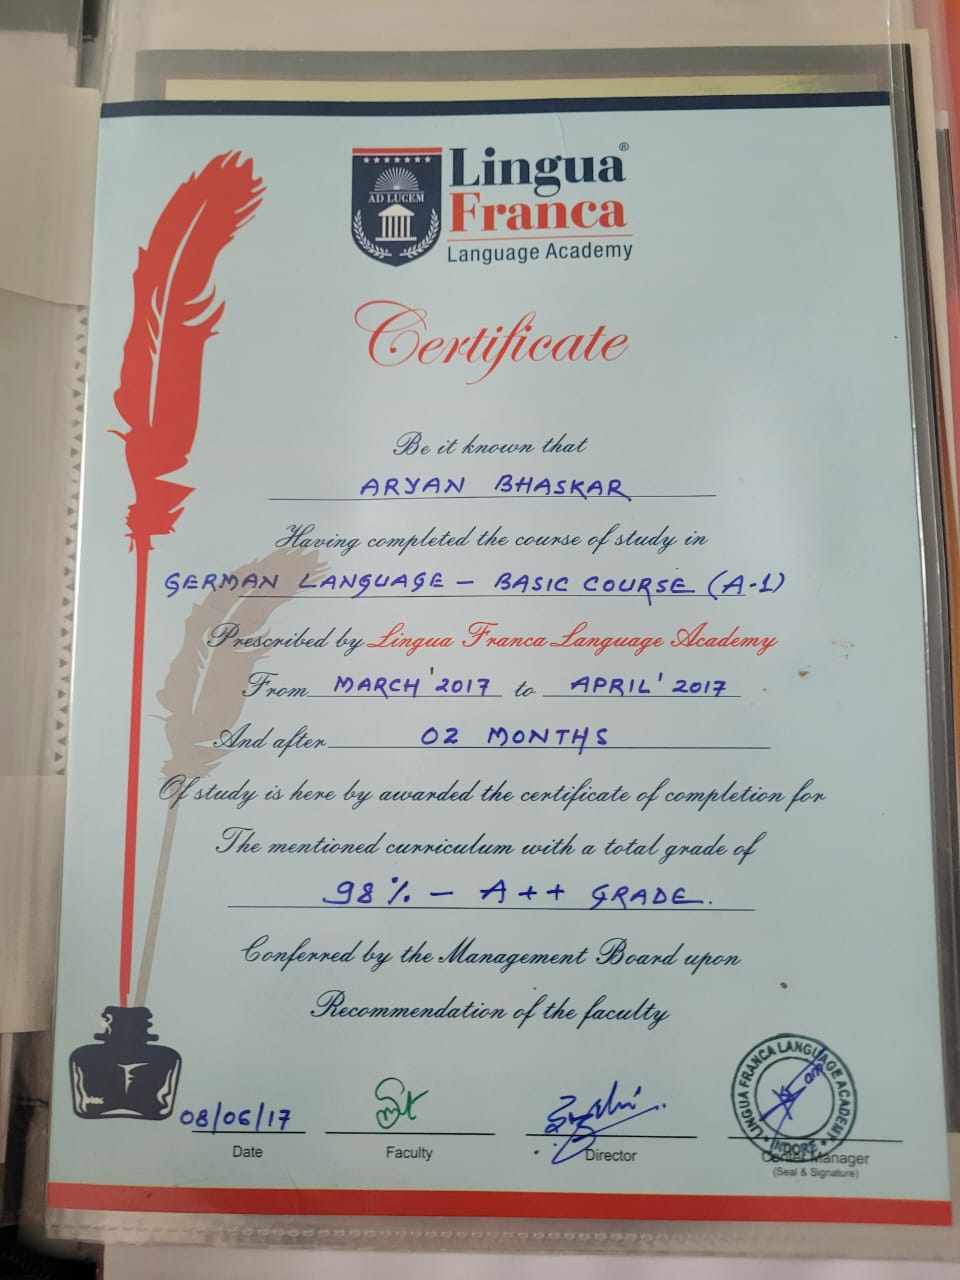 AD LUCEM
Lingua®
Franca
Language Academy
Certificate
Be it known that
ARYAN BHASKAR
Having completed the course of study in
GERMAN LANGUAGE - BASIC COURSE (A-1)
Prescribed by Lingua Franca Language Academy
From MARCH'2017 to APRIL'2017
And after 02 MONTHS
Of study is here by awarded the certificate of completion for
The mentioned curriculum with a total grade of
98% - A++ GRADE.
Conferred by the Management Board upon
Recommendation of the faculty
LINGUA FRANCA LANGUAGE ACADEMY
INDORE
08/06/17
Date Faculty Director Center Manager
(Seal & Signature)